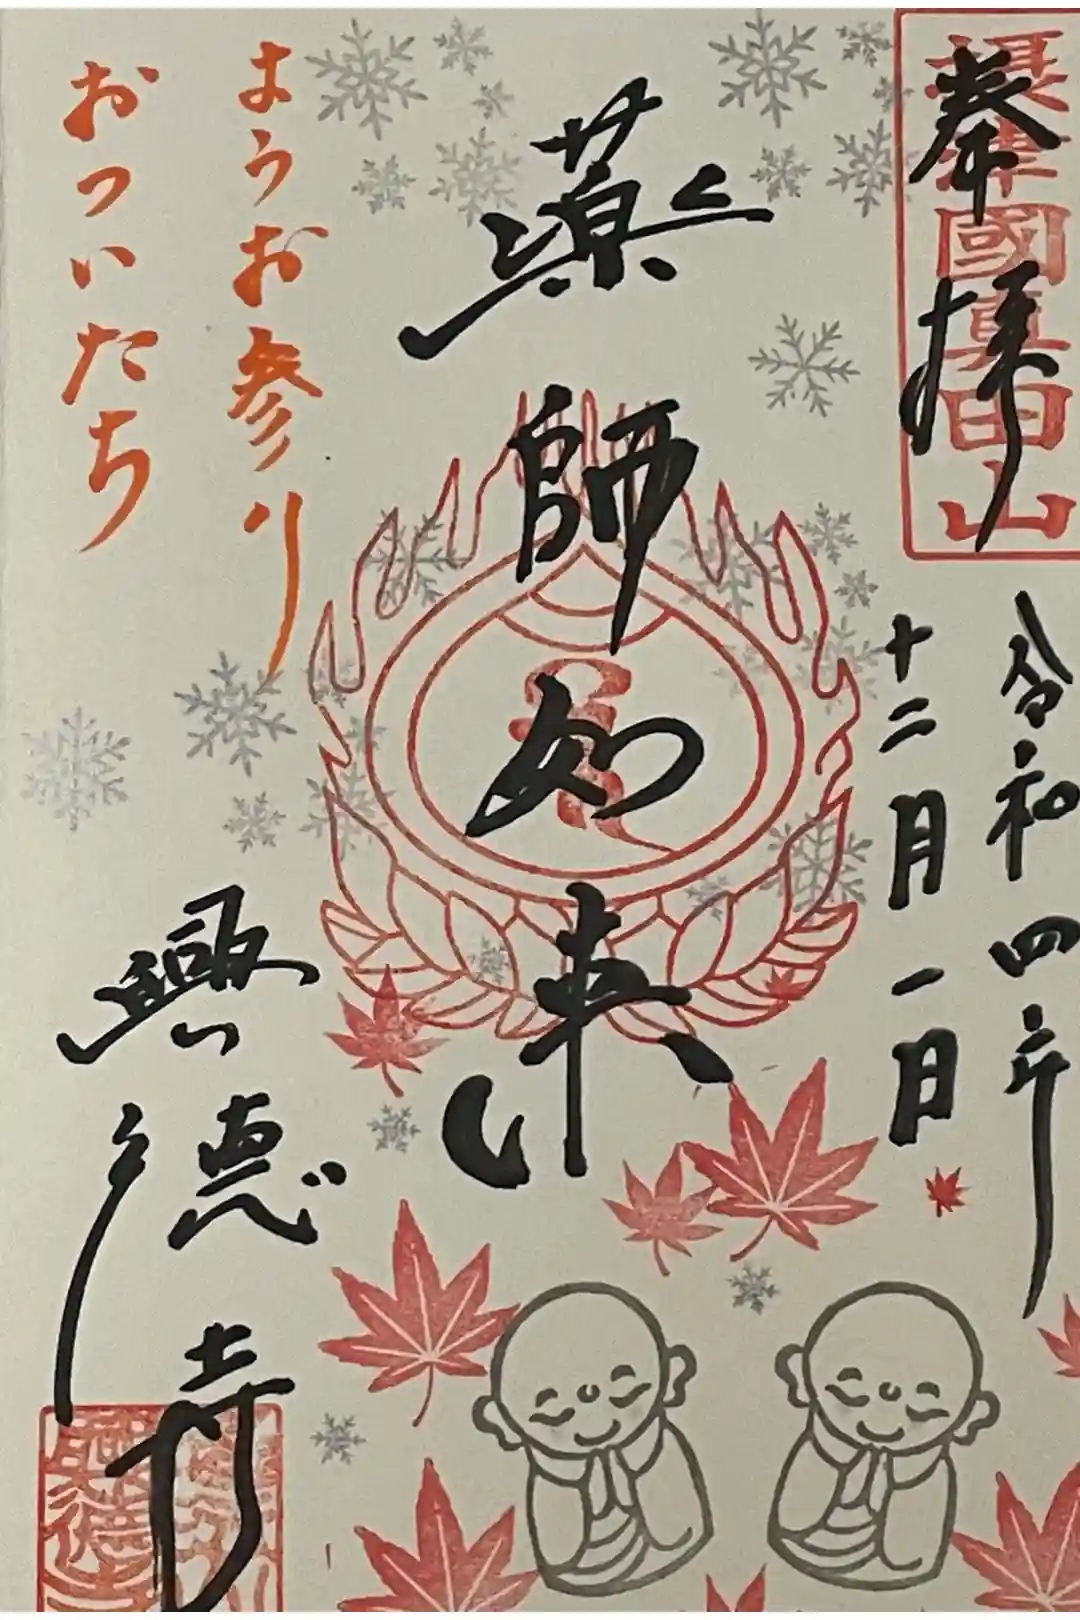 奉拝
摂津國真田山
令和四年
十二月一日
薬師如来
ようお参り
おついたち
興徳寺